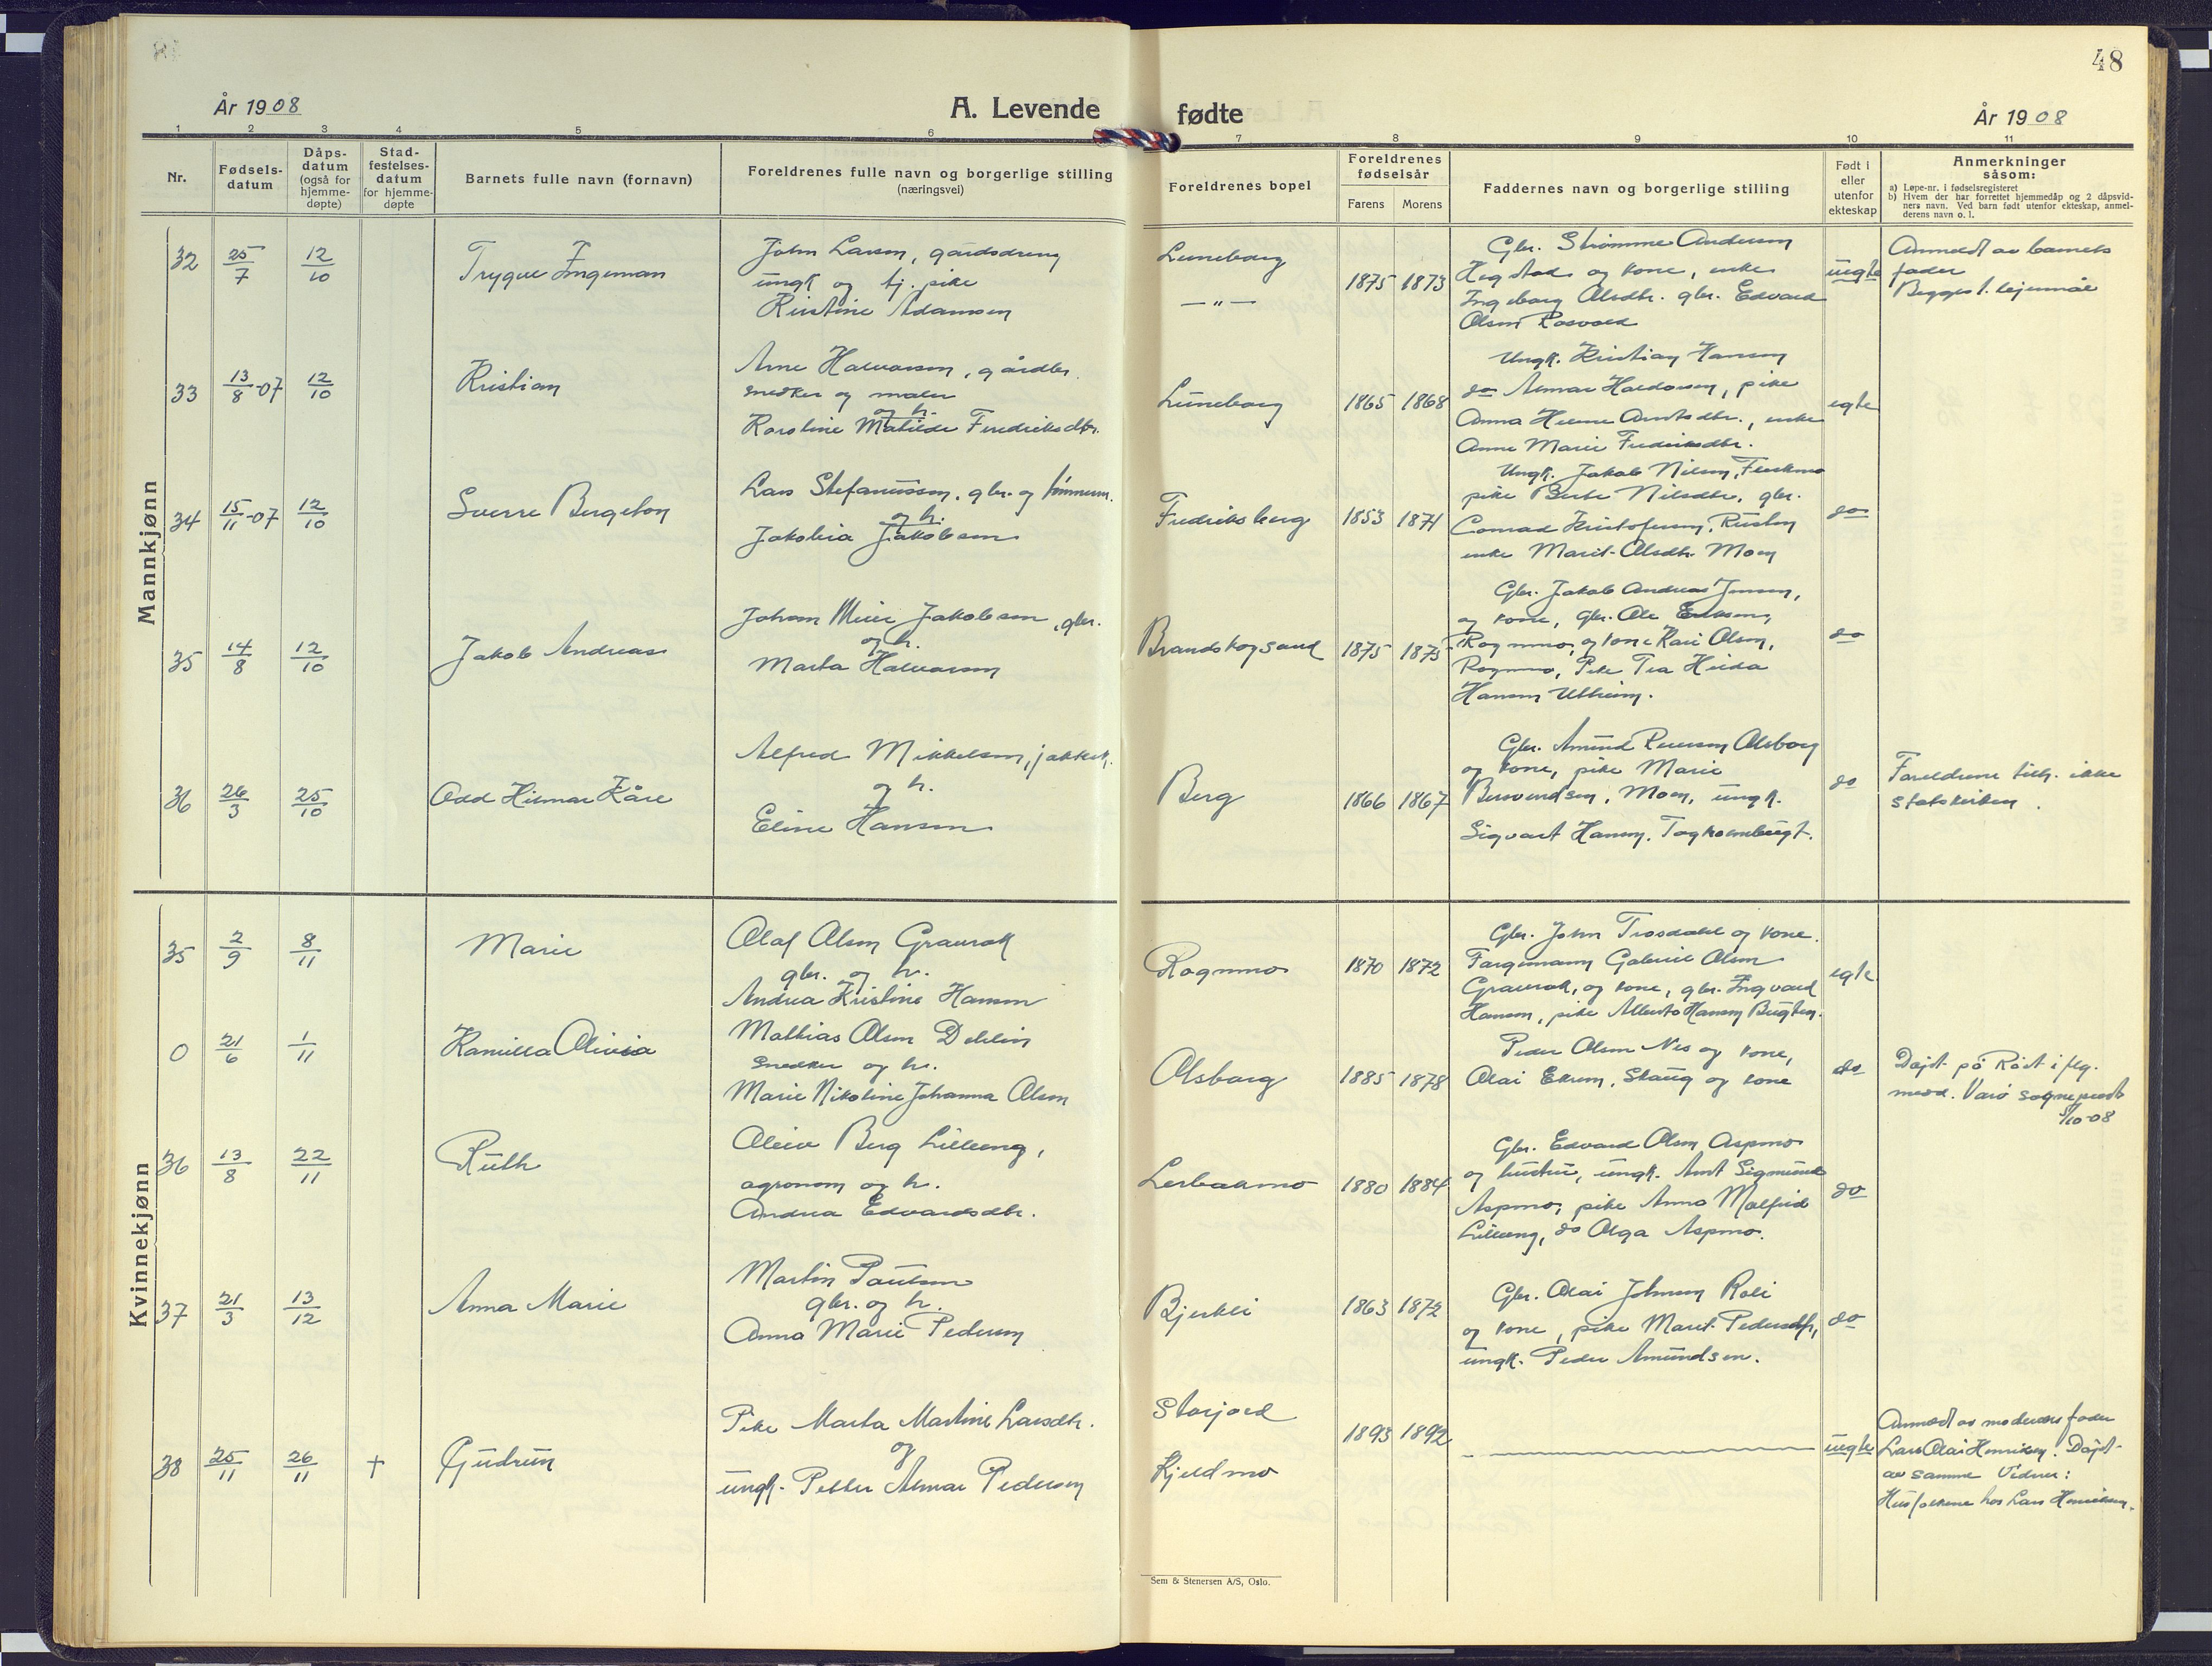 48
År 1908
A. Levende fødte
År 1908
1 2 3 4 5 6 7 8 9 10 11
Nr.
Fødsels-datum
Dåps-datum (også for hjemme-døpte)
Stad-festelses-datum for hjemme-døpte
Barnets fulle navn (fornavn)
Foreldrenes fulle navn og borgerlige stilling (næringsvei)
Foreldrenes bopel
Foreldrenes fødselsår
Farens Morens
Faddernes navn og borgerlige stilling
Født i eller utenfor ekteskap
Anmerkninger såsom:
a) Løpe-nr. i fødselsregisteret
b) Hvem der har forrettet hjemmedåp og 2 dåpsvid-
ners navn. Ved barn født utenfor ekteskap, anmel-
derens navn o. l.
Mannkjønn
32 25/7 12/10 Trygve Ingeman
John Larsen, gårdsdreng
ungk og tj. pike
Kristine Adamsen
Luneborg
— " —
1875 1873
Gbr. Strømme Andersen
Hegstad og kone, enke
Ingeborg Olsdtr. gbr. Edvard
Olsen Rosvold
uegte
Anmeldt av barnets
fader
Begges 1. lejermål
33 13/8-07 12/10 Kristian
Arne Halvorsen, gårdbr.
snedker og maler
og h.
Karoline Matilde Fredriksdtr.
Luneborg
1865 1868
Ungk. Kristian Hansen
do Almar Haldorsen, pike
Anna Helene Arntsdtr., enke
Anne Marie Fredriksdtr.
egte
34 15/11-07 12/10 Sverre Bergeton
Lars Stefanussen, gbr. og tømmerm.
og h.
Jakobia Jakobsen
Fredriksberg
1853 1871
Ungk. Jakob Nilsen, Fleskmo
pike Berte Nilsdtr, gbr.
Conrad Kristofersen,
enke Marit Olsdtr. Moen
do
35 14/8 12/10 Jakob Andreas
Johan Meier Jakobsen, gbr.
og h.
Marta Halvorsen
Brandskogsand
1875 1875
Gbr. Jakob Andreas Jensen,
og kone, gbr. Ole Eriksen,
Rognmo, og kone Kari Olsen,
Rognmo, Pike Tea Hilda
Hansen Utheim.
do
36 26/3 25/10 Odd Hilmar Kåre
Alfred Mikkelsen,
og h.
Eline Hansen
Berg
1866 1867
Gbr. Amund Pedersen Olsborg
og kone, pike Marie
Bersvendsen, Moen, ungk.
Sigvart Hansen,
do
Foreldrene tilh. ikke
statskirken.
Kvinnekjønn
35 2/9 8/11 Marie
Olaf Olsen Gravrok
gbr. og h.
Andrea Kristine Hansen
Rognmo
1870 1872
Gbr. John Trosdahl og kone.
Gabriel Olsen
Gravrok, og kone, gbr. Ingvard
Hansen, pike Alberta Hansen Bugten.
egte
0 21/6 1/11 Kamilla Olivia
Mathias Olsen Dehlin
Snedker og h.
Marie Nikoline Johanna Olsen
Olsborg
1885 1878
Peder Olsen Nes og kone,
Olai Ekrem, og kone
do
Døpt på Røst iflg.
medd. Værø sogneprest
/10-08
36 13/8 22/11 Ruth
Oluv Berg Lilleeng,
agronom og h.
Andrea Edvardsdtr.
Lerbakmo
1880 1884
Gbr. Edvard Olsen Aspmo
og hustru, ungk. Arnt Sigmund
Aspmo, pike Anna Malfrid
Lilleeng, do Olga Aspmo.
do
37 21/3 13/12 Anna Marie
Martin Paulsen
gbr. og h.
Anna Marie Pedersen
Bjerkli
1863 1872
Gbr. Olai Johnsen Roli
og kone, pike Marit Pedersdtr,
ungk. Peder Amundsen.
do
38 25/11 26/11 + Gudrun
Pike Marta Martine Larsdtr.
og
ungk. Petter Almar Pedersen
Storjord
Kjeldmo
1893 1892
uegte
Anmeldt av moderens fader
Lars Olai Henriksen. Døpt
av samme Vidner:
Husfolkene hos Lars Henriksen.
Sem & Stenersen A/S, Oslo.